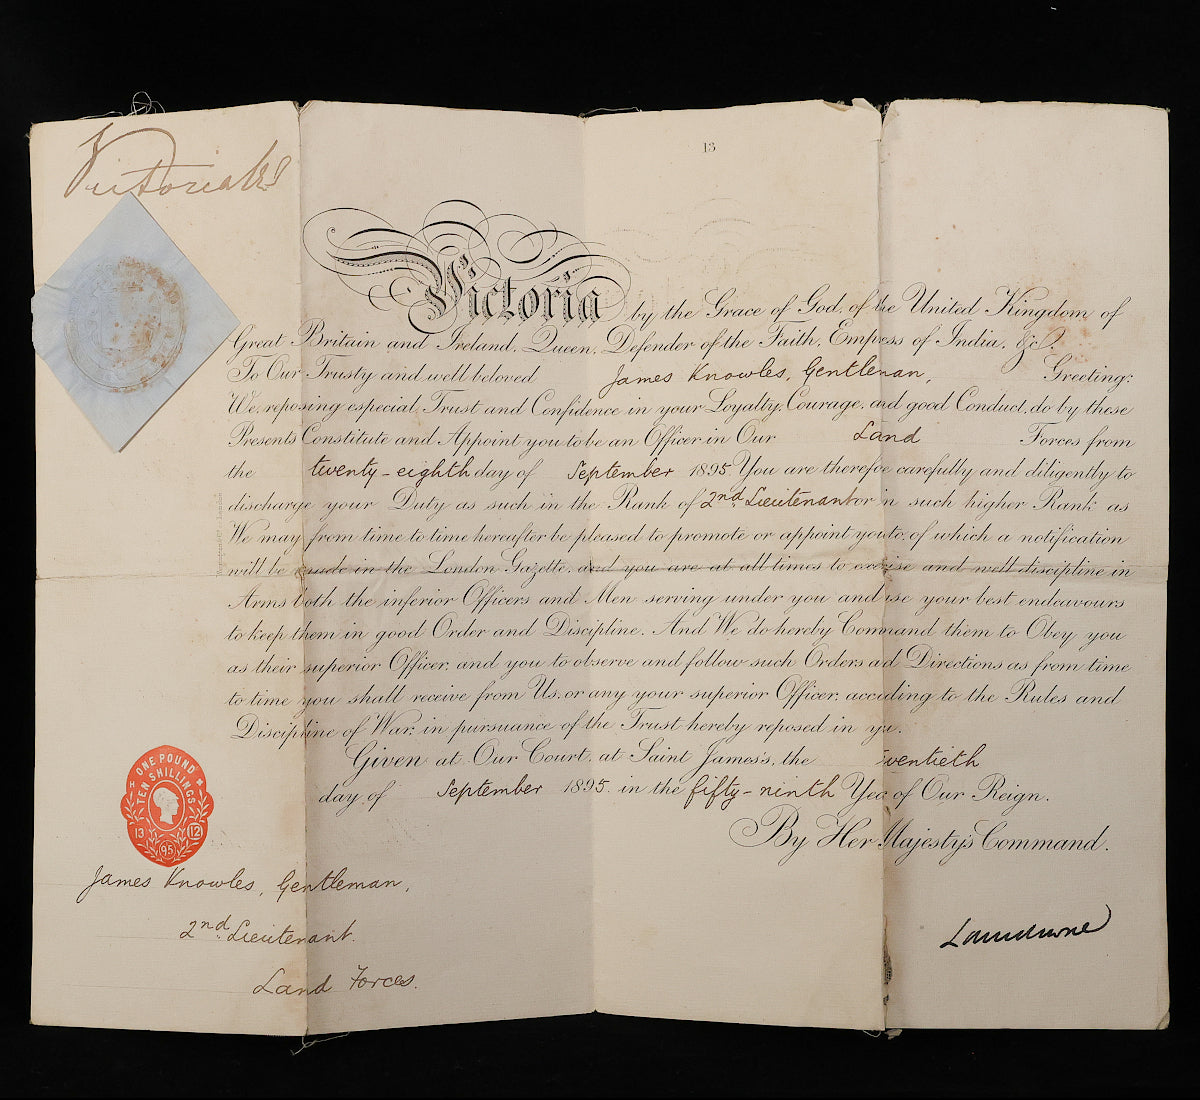 Victoria R I
13
Victoria by the Grace of God, of the United Kingdom of
Great Britain and Ireland, Queen, Defender of the Faith, Empress of India, &c.
To Our Trusty and well beloved James Knowles, Gentleman, Greeting:
We, reposing especial Trust and Confidence in your Loyalty, Courage, and good Conduct, do by these
Presents Constitute and Appoint you to be an Officer in Our Land Forces from
the twenty-eighth day of September 1895. You are therefore carefully and diligently to
discharge your Duty as such in the Rank of 2nd Lieutenant or in such higher Rank as
We may from time to time hereafter be pleased to promote or appoint you to, of which a notification
will be made in the London Gazette, and you are at all times to exercise and well discipline in
Arms both the inferior Officers and Men serving under you and use your best endeavours
to keep them in good Order and Discipline. And We do hereby Command them to Obey you
as their superior Officer, and you to observe and follow such Orders and Directions as from time
to time you shall receive from Us, or any your superior Officer, according to the Rules and
Discipline of War, in pursuance of the Trust hereby reposed in you.
Given at Our Court, at Saint James's, the Twentieth
day of September 1895. in the fifty-ninth Year of Our Reign.
By Her Majesty's Command.
ONE POUND
TEN SHILLINGS
13 12
95
James Knowles, Gentleman,
2nd Lieutenant.
Land Forces.
Lansdowne